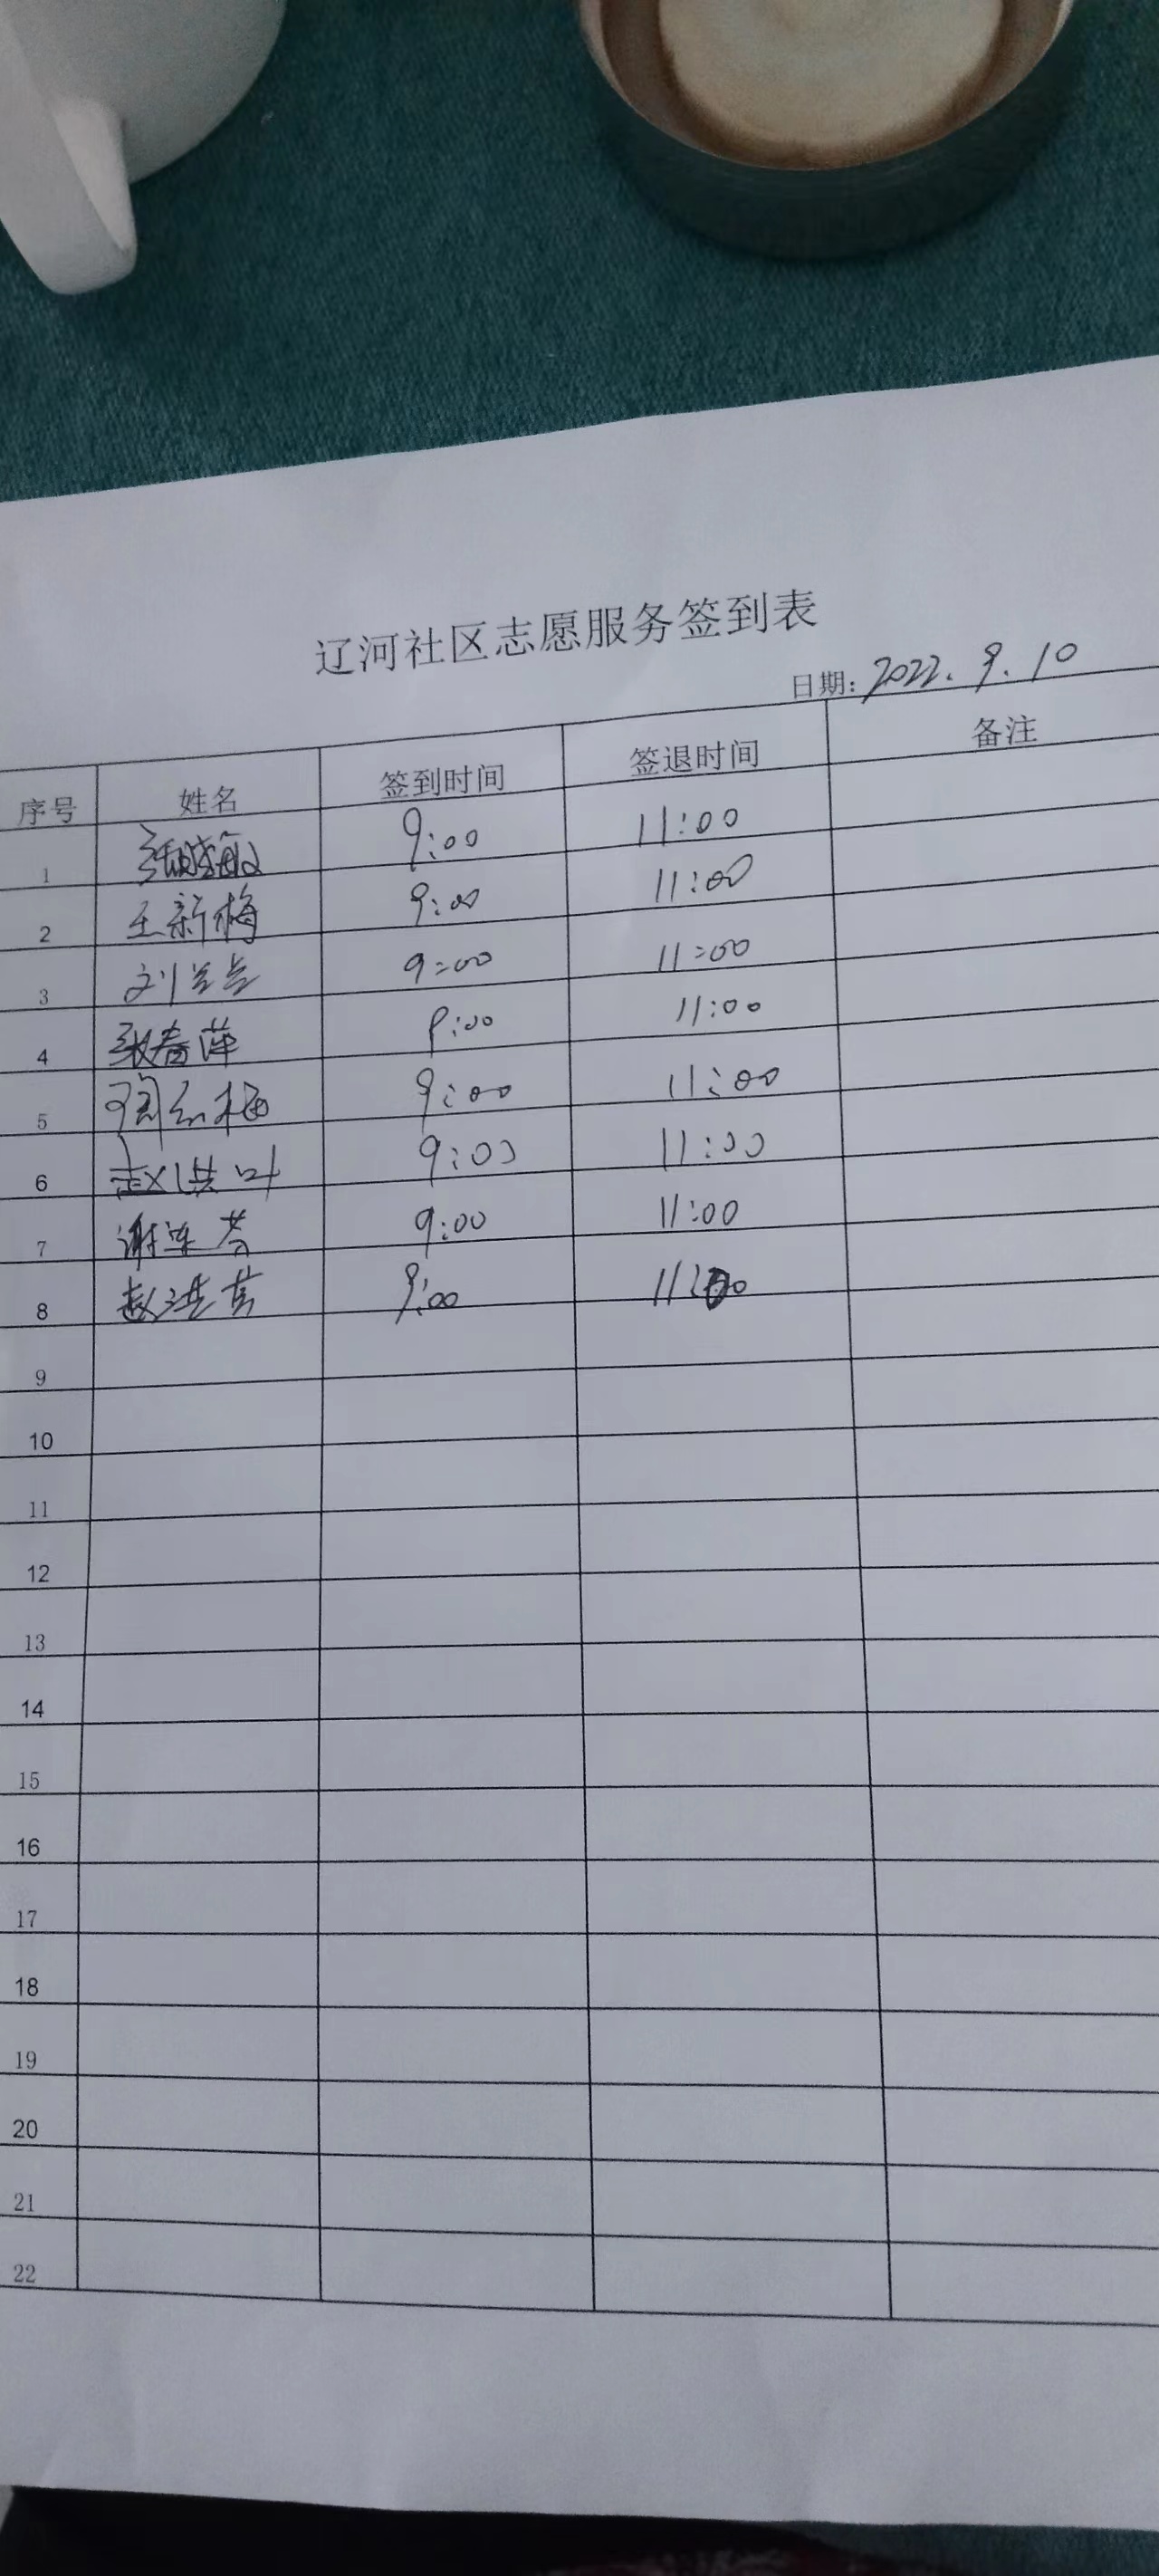 辽河社区志愿服务签到表
日期: 2022.9.10
序号 姓名 签到时间 签退时间 备注
1 张晓敏 9:00 11:00
2 王新梅 9:00 11:00
3 刘兰兰 9:00 11:00
4 张春萍 9:00 11:00
5 陶红梅 9:00 11:00
6 赵洪叶 9:00 11:00
7 谢莲芳 9:00 11:00
8 赵 9:00 11:00
9
10
11
12
13
14
15
16
17
18
19
20
21
22